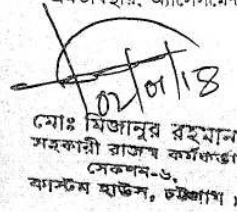 02/01/18
মোঃ মিজানুর রহমান
সহকারী রাজস্ব কর্মকর্তা
সেকশন-৬,
কাস্টম হাউস, চট্টগ্রাম।